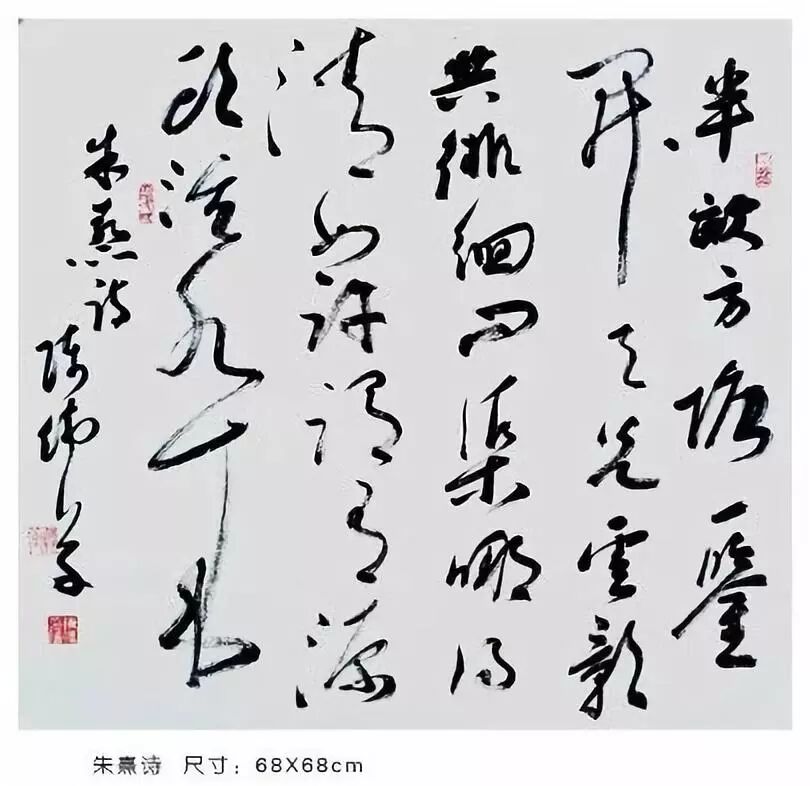 半畝方塘一鑒
开天光雲影
共徘徊问渠哪得
清如许谓有源
头活水下来
朱熹诗
朱熹诗 尺寸：68X68cm